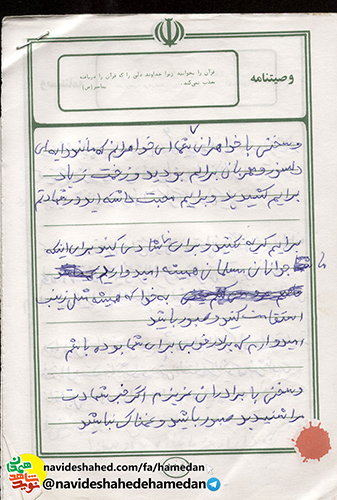 وصیتنامه
قرآن را بخوانید زیرا خداوند دلی را که قرآن را دریافته
عذاب نمی‌کند.
پیامبر (ص)
و سخنی با خواهرانی شما ای خواهرانم که مانند دایه ای
دلسوز و مهربان برایم بودید و زحمت زیاد
برایم کشیدید و برایم محبت داشته اید و شهادتم
برایم گریه نکنید و برای شادی کنید برای اینکه
ما جوانان مسلمان همیشه امیدواریم
به خدا که همیشه مثل زینب
استقامت کنید و صبور باشید
امیدوارم که برادر خوبی برای شما بوده باشم
و سخنی با برادران عزیزم اگر خبر شهادت
مرا شنیدید صبور باشید و غمناک نباشید
navideshahed.com/fa/hamedan
@navideshahedehamedan